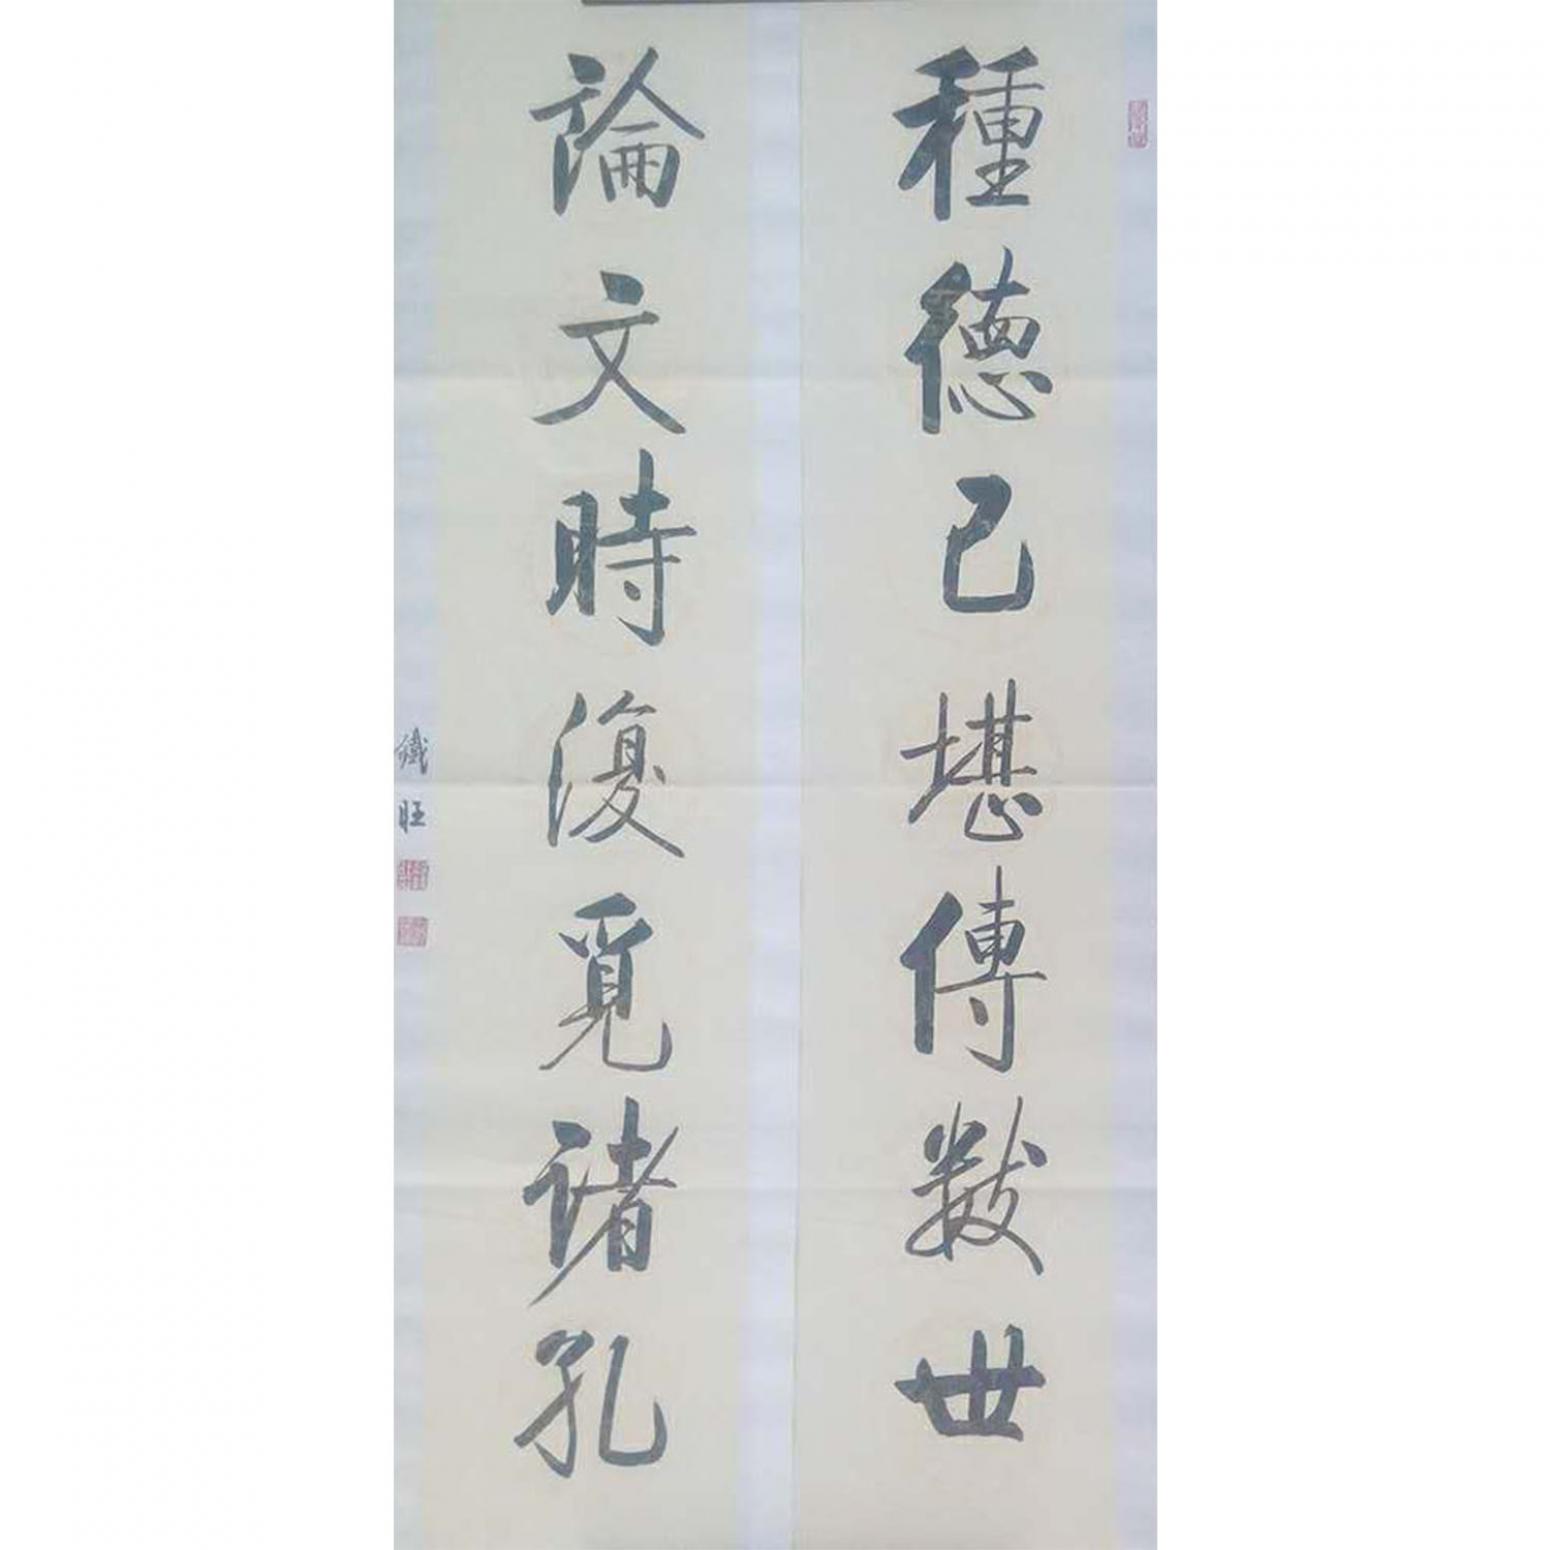 種德已堪傳數世
論文時復覓諸孔
鐵旺